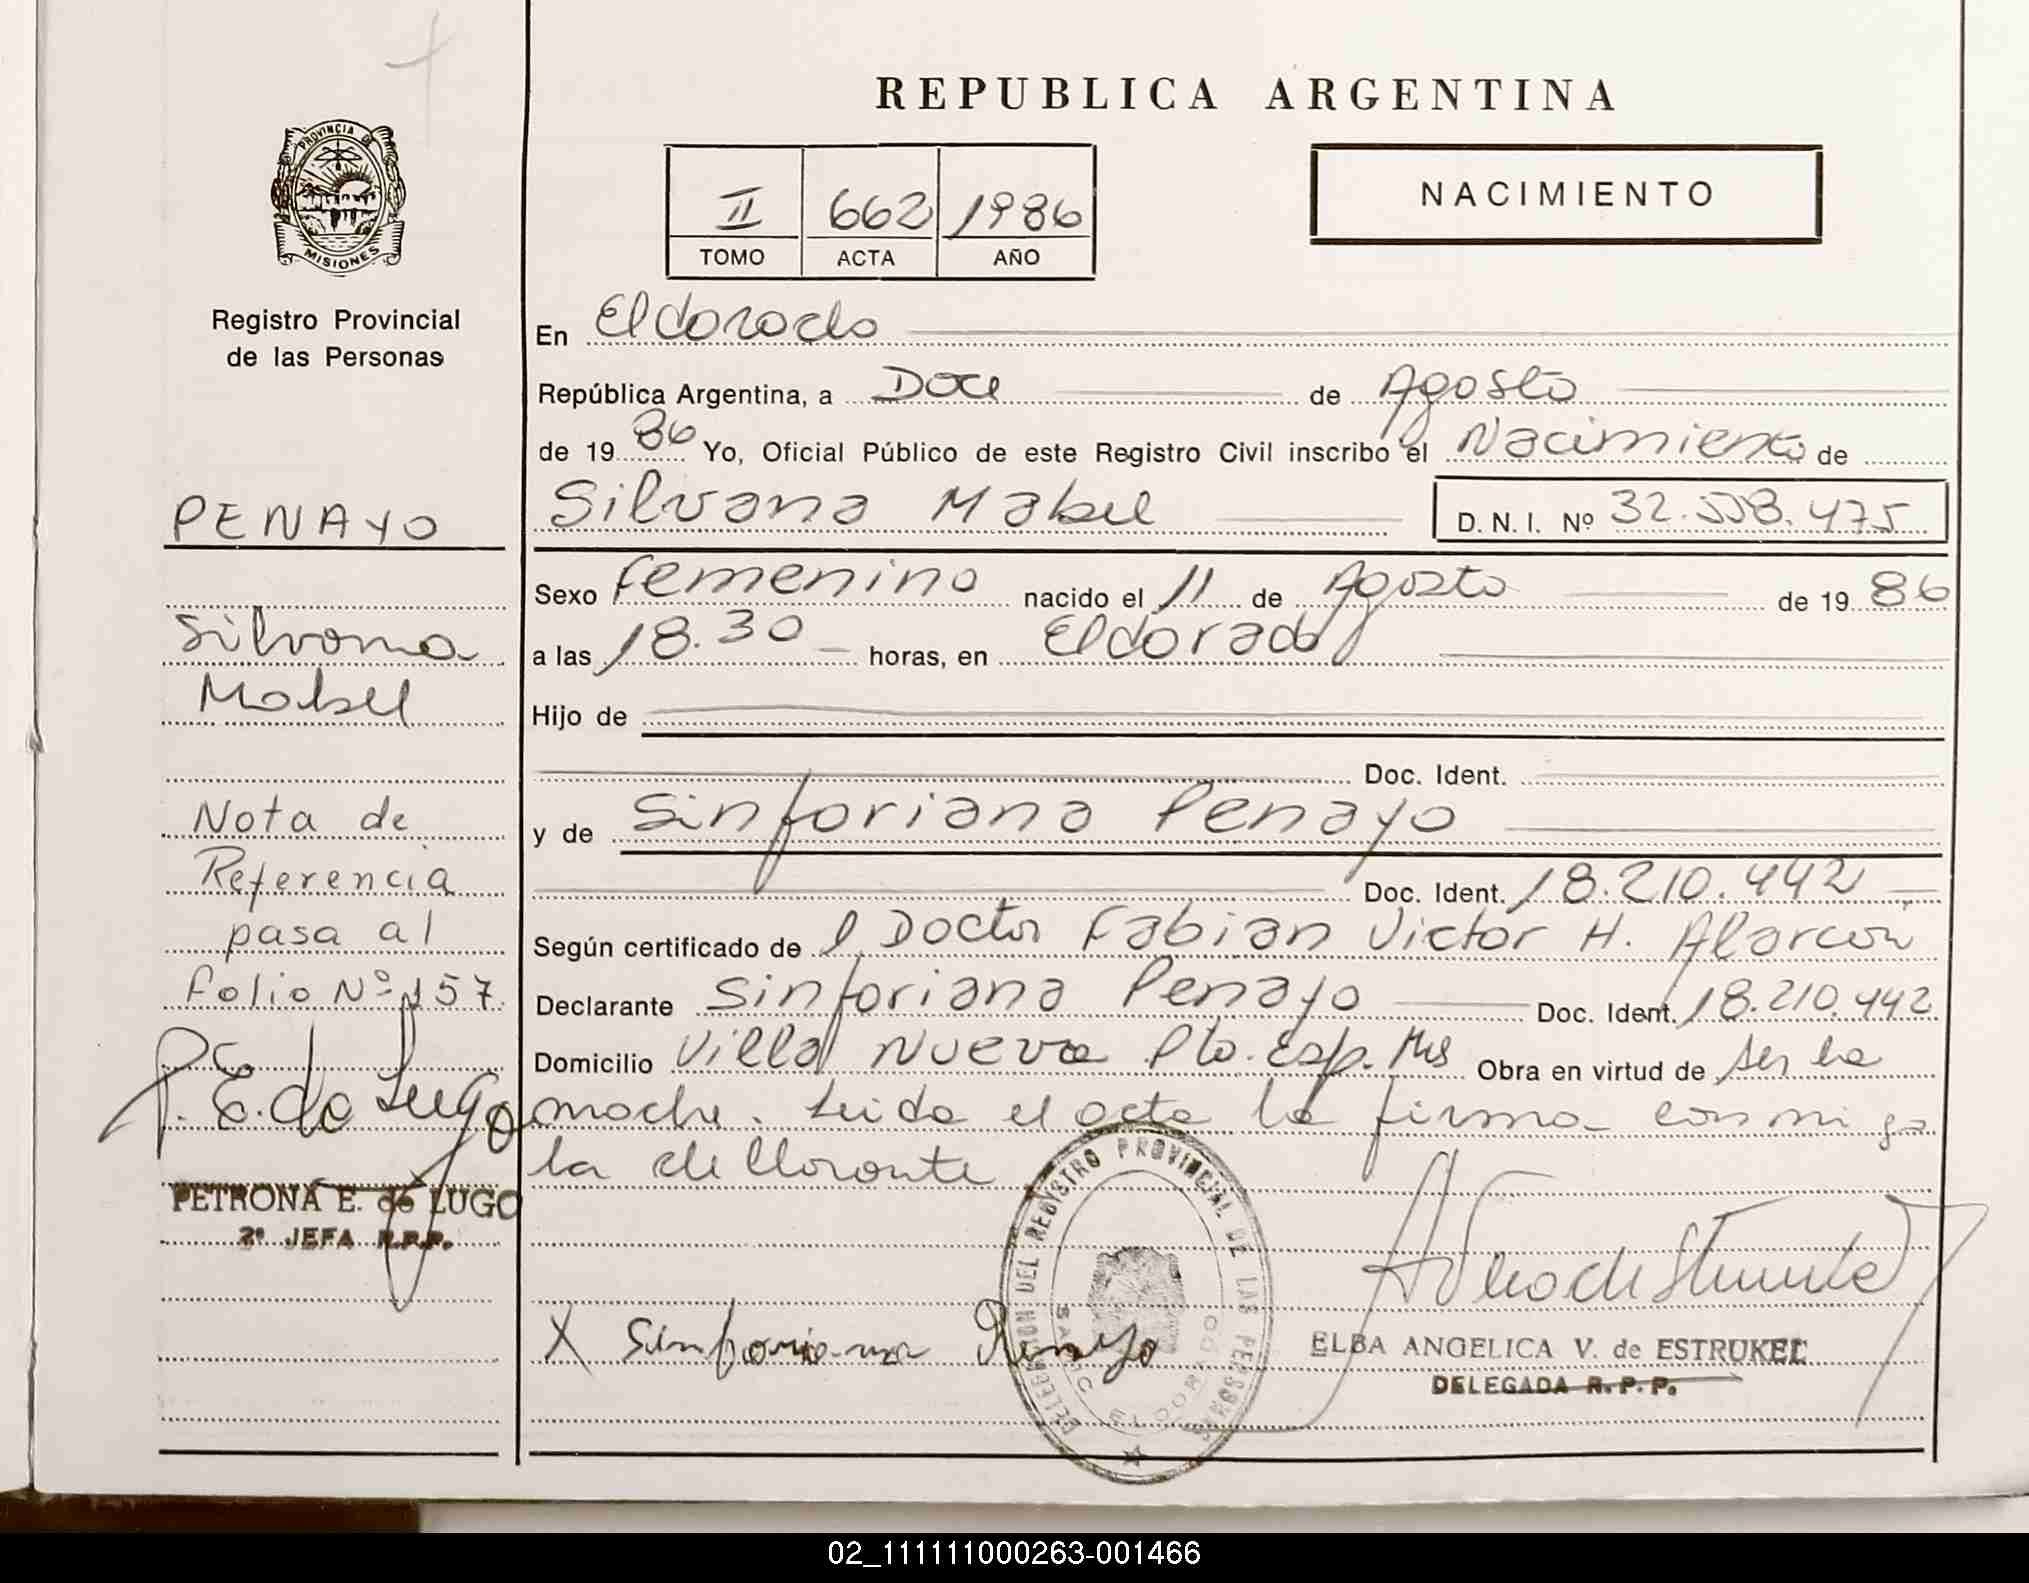 REPUBLICA ARGENTINA
PROVINCIA DE
MISIONES
Registro Provincial
de las Personas
II 662 1986
TOMO ACTA AÑO
NACIMIENTO
PENAYO
Silvana
Mabel
Nota de
Referencia
pasa al
folio Nº 157.
P. E. de Lugo
PETRONA E. de LUGO
2º JEFA R.P.P.
En Eldorado
República Argentina, a Doce de Agosto
de 1986 Yo, Oficial Público de este Registro Civil inscribo el Nacimiento de
Silvana Mabel D. N. I. Nº 32.558.475
Sexo femenino nacido el 11 de Agosto de 1986
a las 18.30 horas, en Eldorado
Hijo de
Doc. Ident.
y de Sinforiana Penayo
Doc. Ident. 18.210.442
Según certificado de l Doctor Fabian Victor H. Alarcon
Declarante Sinforiana Penayo Doc. Ident. 18.210.442
Domicilio Villa Nueva Pto. Esp. Ms Obra en virtud de ser la
madre. Leida el acta la firma conmigo
la declarante
DELEGACION DEL REGISTRO PROVINCIAL DE LAS PERSONAS
ELDORADO
X Sinforiana Penayo
ELBA ANGELICA V. de ESTRUKEL
DELEGADA R.P.P.
02_111111000263-001466